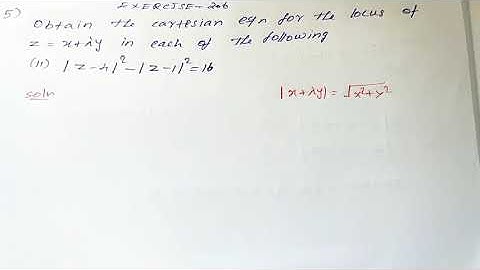 EXERCISE - 2.6
5) Obtain the cartesian eqn for the locus of
z = x+iy in each of the following
(ii) |z-4|²-|z-1|²=16
soln |x+iy| = √x²+y²